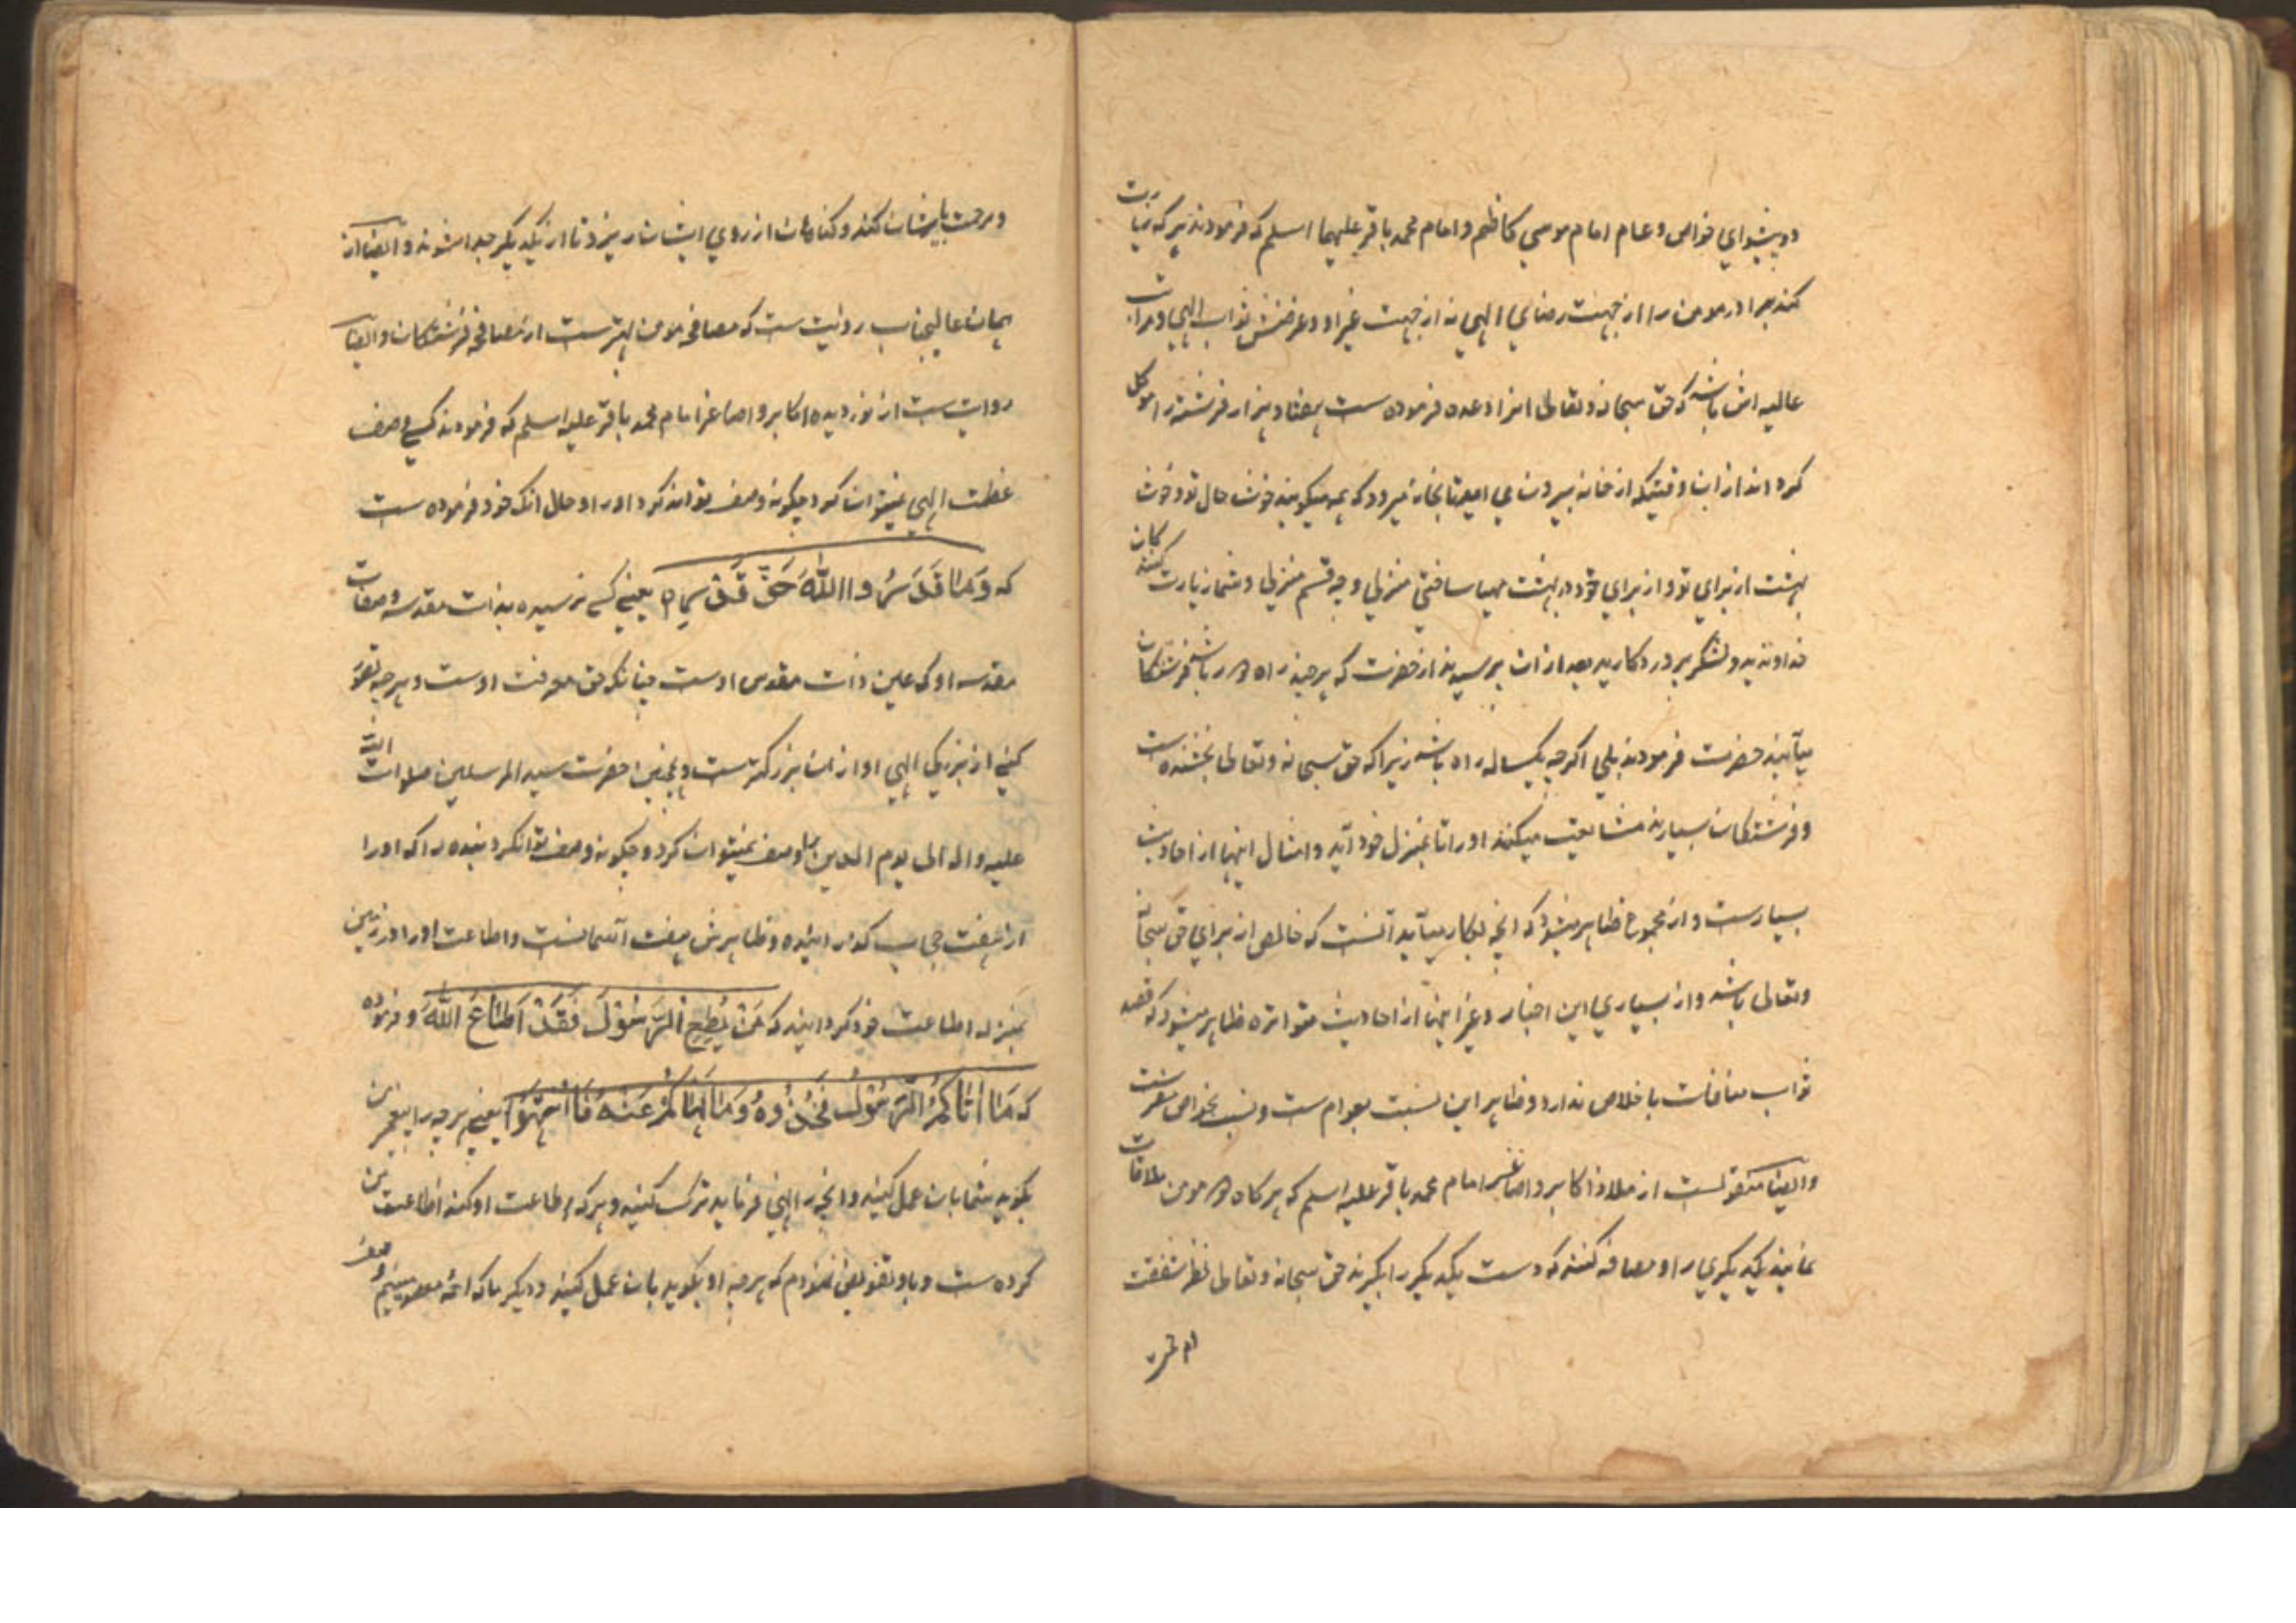 دو پیشوای خواص و عام امام موسی کاظم و امام محمد باقر علیهما السلم که فرمودند هر که زیارت
کند برادر مومن را از جهت رضای الهی نه از جهت غیر او و غرضش ثواب الهی و مراتب
عالیه اش باشد که حق سبحانه و تعالی انرا وعده فرموده ست هفتاد هزار فرشته را موکل
کرداند از ان وقتیکه از خانه بیرون می اید تا بخانه میرود که همه میکویند خوش حال تو و خوش
بهشت از برای تو و از برای خود در بهشت مهیا ساختی منزلی و چه قسم منزلی و شما زیارت کنندکان
خداوندید و لشکر پروردکارید بعد از ان پرسیدند از حضرت که هر چند راه دور باشد فرشتکان
میآیند حضرت فرمودند بلی اکرچه یکساله راه باشد زیرا که حق سبحانه و تعالی بخشنده است
و فرشتکان بسیارند مشایعت میکنند او را تا بمنزل خود آید و امثال اینها از احادیث
بسیارست و از مجموع ظاهر میشود که انچه بکار میآید آنست که خالص از برای حق سبحانه
و تعالی باشد و از بسیاری این اخبار و غیر اینها از احادیث متواتره ظاهر میشود که قصد
ثواب منافات با خلاص ندارد و ظاهر این نسبت بعوام ست و نسبت بخواص معرفت
و ایضا منقولست از ملاذ اکابر و اصاغر امام محمد باقر علیه السلم که هر کاه دو مومن ملاقات
نمایند یکدیکری را و مصافحه کنند که دست یکدیکر را بکیرند حق سبحانه و تعالی نظر شفقت
و مرحمت بایشان کند و کناهان از روی ایشان ریزد تا از یکدیکر جدا شوند و ایضا از
همان عالیجناب روایت ست که مصافحه مومن بهترست از مصافحه فرشتکان و ایضا
روایت ست از نور دیده اکابر و اصاغر امام محمد باقر علیه السلم که فرمودند کسی وصف
عظمت الهی نمیتوان کرد چکونه وصف تواند کرد او را و حال انکه خود فرموده ست
که وَمَا قَدَرُوا اللّٰهَ حَقَّ قَدْرِهِ یعنی کسی نرسیده بذات مقدسه و صفات
مقدسه او که عین ذات مقدس اوست چنانکه حق معرفت اوست و هرچه تصور
کنی از بزرکی الهی او از ان بزرکترست و همچنین حضرت سید المرسلین صلوات الله
علیه و اله الی یوم الدین را وصف نمیتوان کرد و چکونه وصف توانکرد بنده را که او را
از هفت حجاب کذرانیده و ظاهرش هفت آسمانست و اطاعت او را در زمین
بمنزله اطاعت خود کردانیده که مَنْ یُطِعِ الرَّسُوْلَ فَقَدْ اَطَاعَ اللّٰهَ و فرموده
که مَا اٰتَاکُمُ الرَّسُوْلُ فَخُذُوْهُ وَمَا نَهَاکُمْ عَنْهُ فَانْتَهُوْا یعنی هرچه را پیغمبر من
بکوید شما بان عمل کنید و انچه را نهی فرماید ترک کنید و هر که اطاعت او کند اطاعت من
کرده ست و باو تفویض نمودم که هرچه او بکوید بان عمل کنید و دیکر ما که ائمه معصومینیم وصف